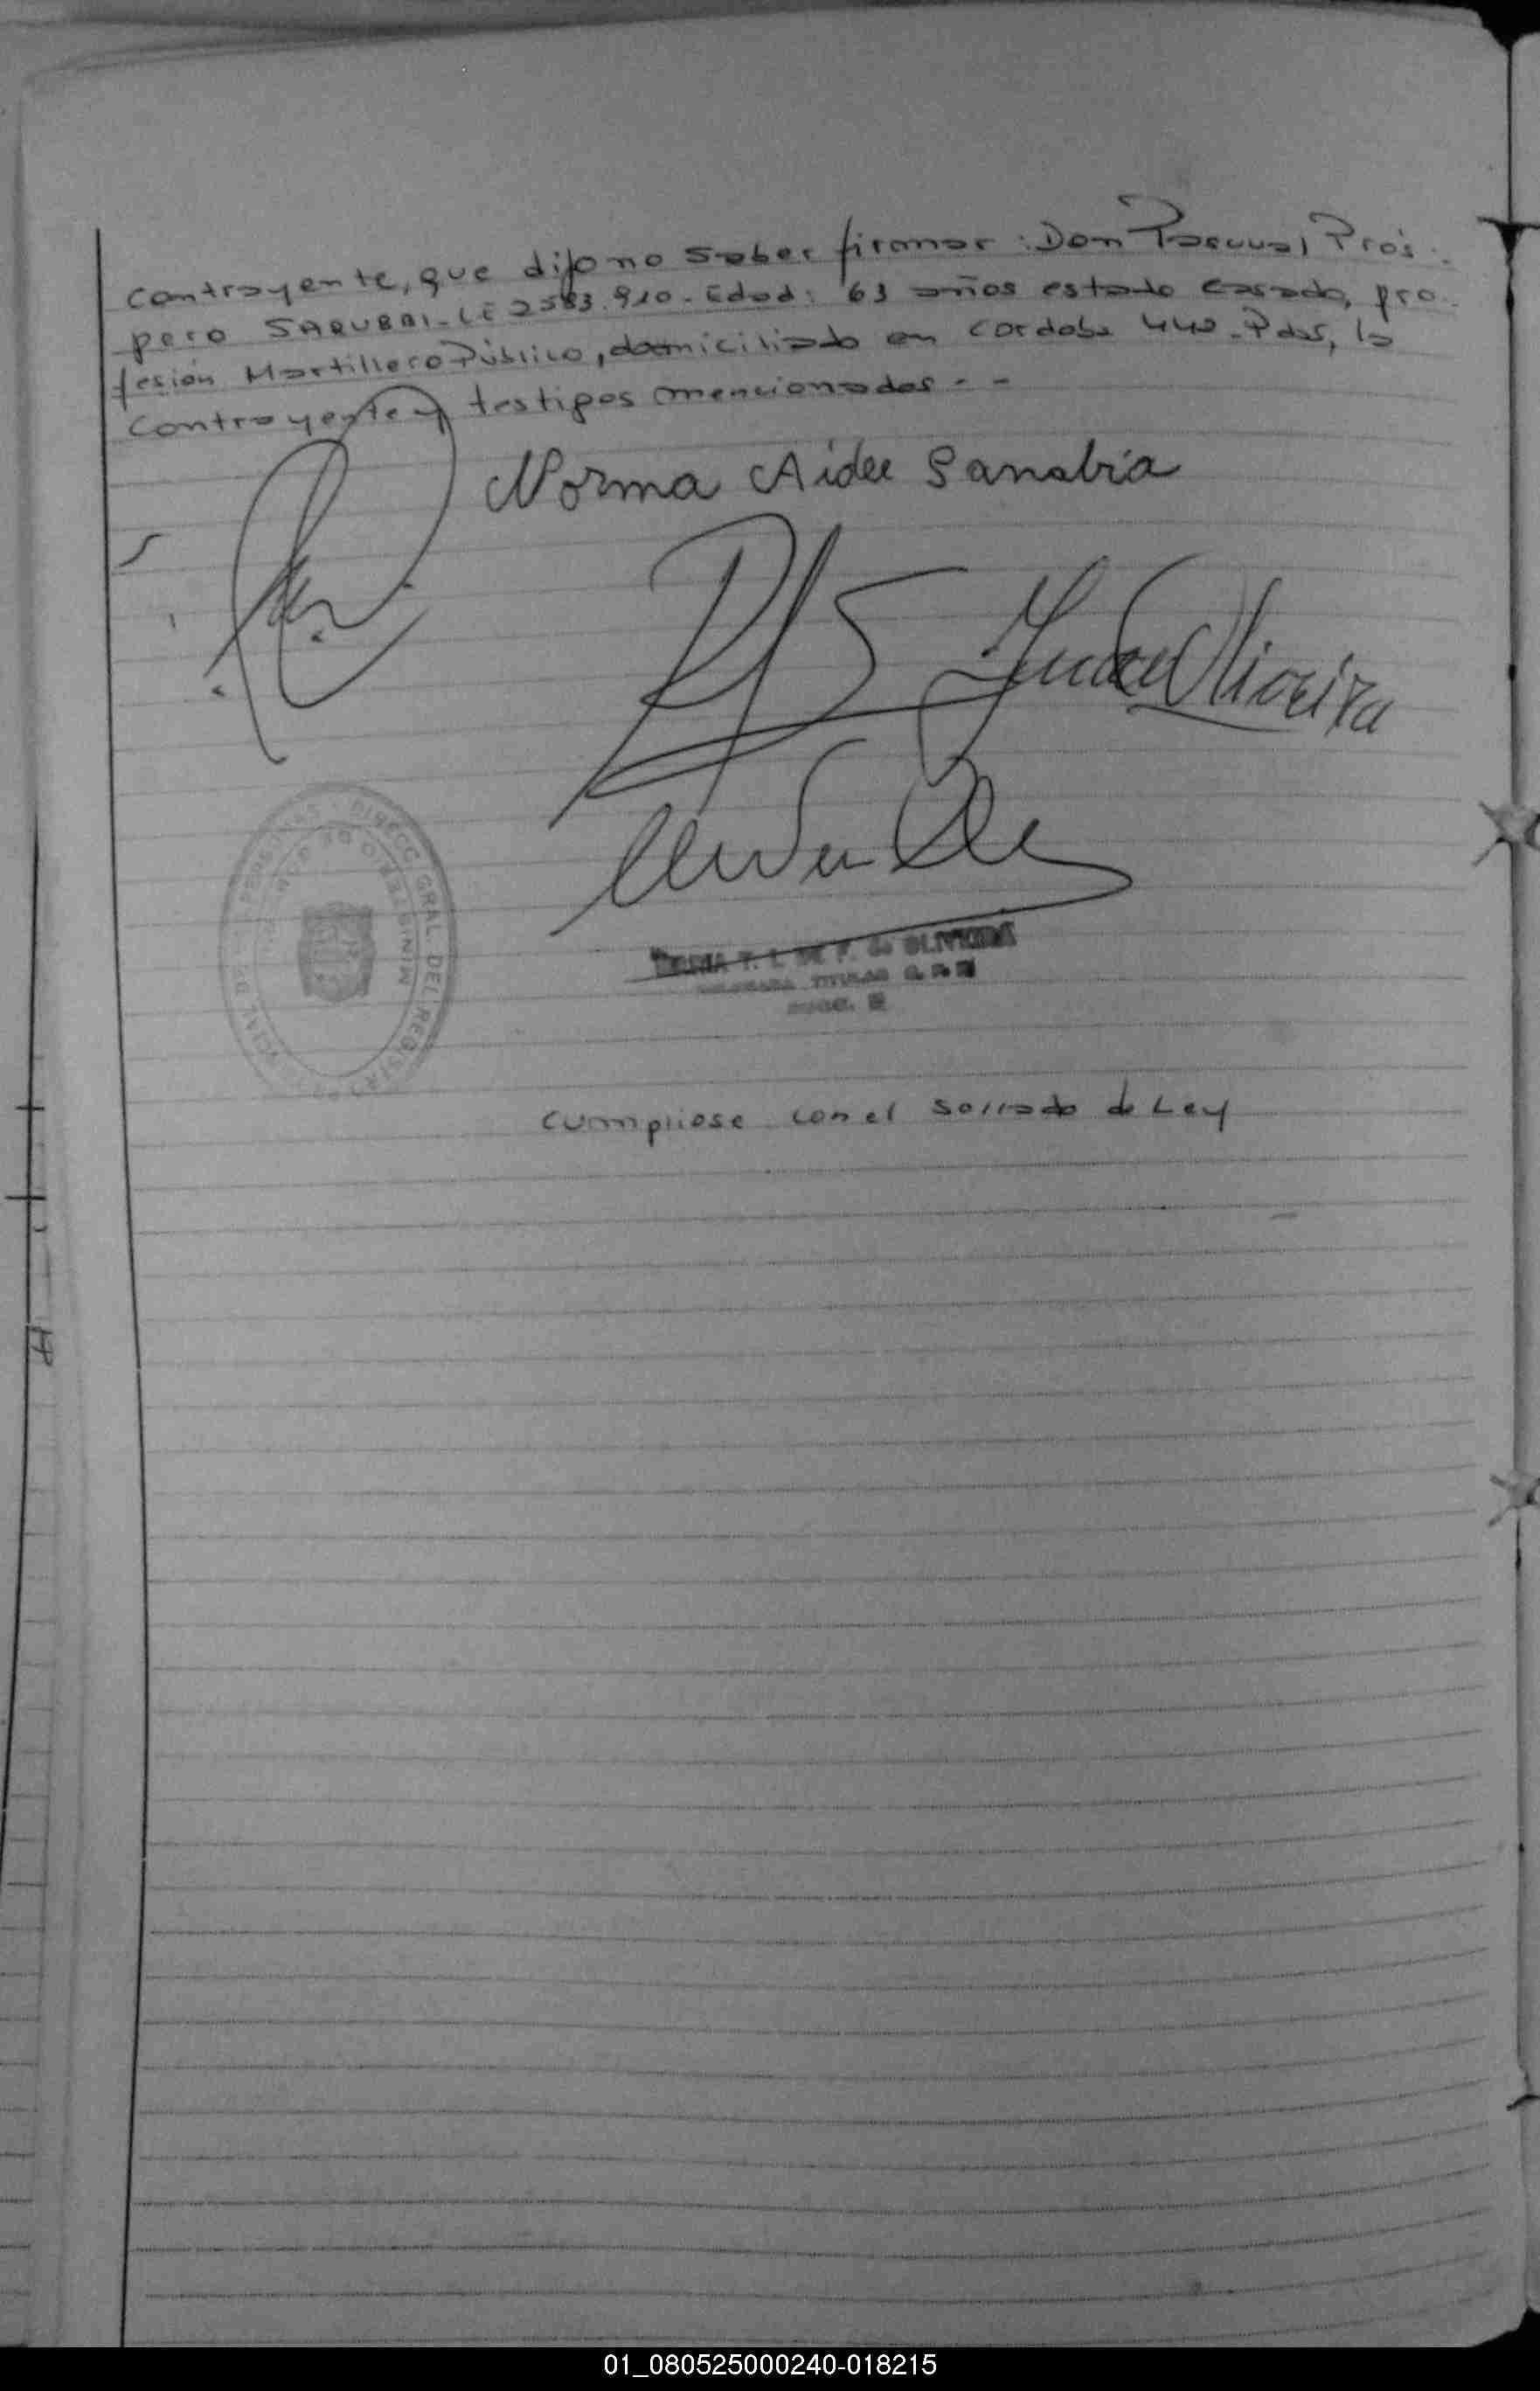 contrayente, que dijo no saber firmar: Don Pascual Prós-
pero SARUBBI - LE 2583.910 - Edad: 63 años estado casado, pro-
fesión Martillero Público, domiciliado en Cordoba 440 - Pdas, la
contrayente y testigos mencionados - -
Norma Aidee Sanabria
Oliveira
DIRECC. GRAL. DEL REGISTRO
MINISTERIO DE GOB
T. L. DE F. de OLIVEIRA
TITULAR
cumpliose con el sellado de Ley
01_080525000240-018215